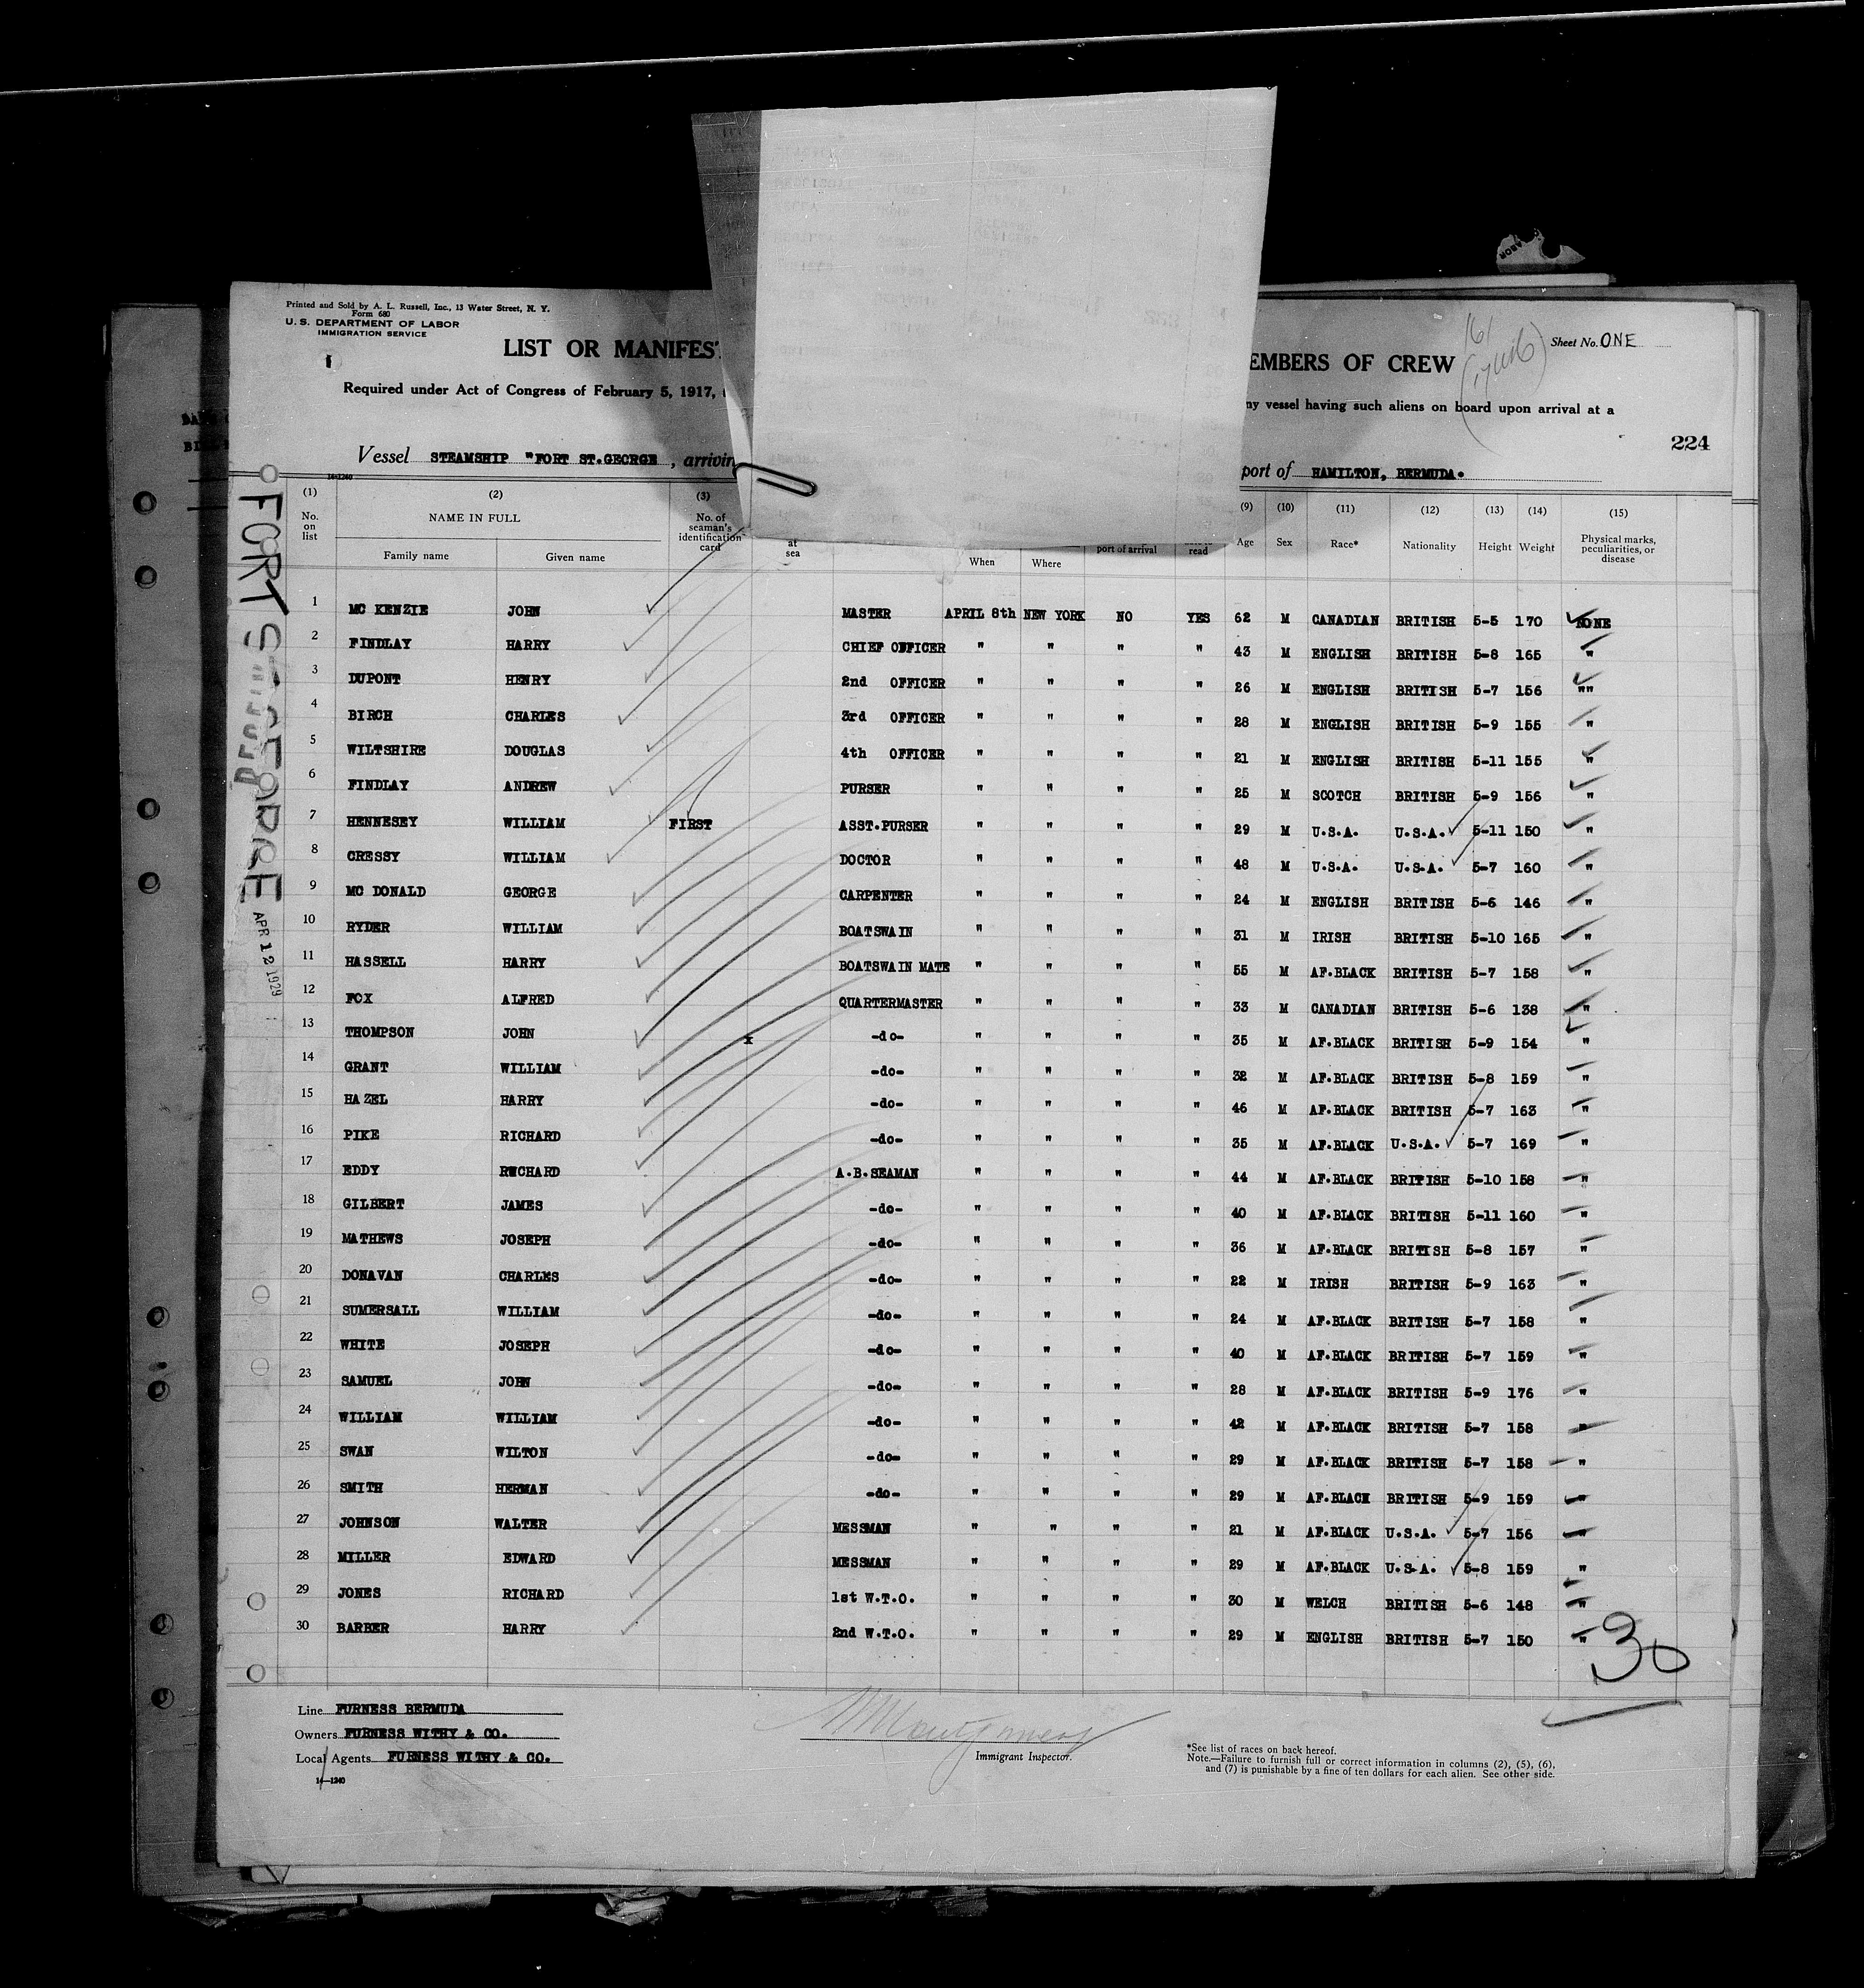 Printed and Sold by A. L. Russell, Inc., 13 Water Street, N. Y.
Form 680
U. S. DEPARTMENT OF LABOR
IMMIGRATION SERVICE
LIST OR MANIFEST
EMBERS OF CREW
Sheet No. ONE
Required under Act of Congress of February 5, 1917,
ny vessel having such aliens on board upon arrival at a
224
Vessel STEAMSHIP "FORT ST.GEORGE , arrivin
port of HAMILTON, BERMUDA.
14-1240
(1) (2) (3) (9) (10) (11) (12) (13) (14) (15)
No. on list NAME IN FULL No. of seaman's identification card at sea When Where port of arrival read Age Sex Race* Nationality Height Weight Physical marks, peculiarities, or disease
Family name Given name
1 MC KENZIE JOHN MASTER APRIL 8th NEW YORK NO YES 62 M CANADIAN BRITISH 5-5 170 NONE
2 FINDLAY HARRY CHIEF OFFICER " " " " 43 M ENGLISH BRITISH 5-8 165 "
3 DUPONT HENRY 2nd OFFICER " " " " 26 M ENGLISH BRITISH 5-7 156 ""
4 BIRCH CHARLES 3rd OFFICER " " " " 28 M ENGLISH BRITISH 5-9 155 "
5 WILTSHIRE DOUGLAS 4th OFFICER " " " " 21 M ENGLISH BRITISH 5-11 155 "
6 FINDLAY ANDREW PURSER " " " " 25 M SCOTCH BRITISH 5-9 156 "
7 HENNESEY WILLIAM FIRST ASST.PURSER " " " " 29 M U.S.A. U.S.A. 5-11 150 "
8 CRESSY WILLIAM DOCTOR " " " " 48 M U.S.A. U.S.A. 5-7 160 "
9 MC DONALD GEORGE CARPENTER " " " " 24 M ENGLISH BRITISH 5-6 146 "
10 RYDER WILLIAM BOATSWAIN " " " " 31 M IRISH BRITISH 5-10 165 "
11 HASSELL HARRY BOATSWAIN MATE " " " " 55 M AF.BLACK BRITISH 5-7 158 "
12 FOX ALFRED QUARTERMASTER " " " " 33 M CANADIAN BRITISH 5-6 138 "
13 THOMPSON JOHN x -do- " " " " 35 M AF.BLACK BRITISH 5-9 154 "
14 GRANT WILLIAM -do- " " " " 32 M AF.BLACK BRITISH 5-8 159 "
15 HAZEL HARRY -do- " " " " 46 M AF.BLACK BRITISH 5-7 163 "
16 PIKE RICHARD -do- " " " " 35 M AF.BLACK U.S.A. 5-7 169 "
17 EDDY RWCHARD A.B.SEAMAN " " " " 44 M AF.BLACK BRITISH 5-10 158 "
18 GILBERT JAMES -do- " " " " 40 M AF.BLACK BRITISH 5-11 160 "
19 MATHEWS JOSEPH -do- " " " " 36 M AF.BLACK BRITISH 5-8 157 "
20 DONAVAN CHARLES -do- " " " " 22 M IRISH BRITISH 5-9 163 "
21 SUMERSALL WILLIAM -do- " " " " 24 M AF.BLACK BRITISH 5-7 158 "
22 WHITE JOSEPH -do- " " " " 40 M AF.BLACK BRITISH 5-7 159 "
23 SAMUEL JOHN -do- " " " " 28 M AF.BLACK BRITISH 5-9 176 "
24 WILLIAM WILLIAM -do- " " " " 42 M AF.BLACK BRITISH 5-7 158 "
25 SWAN WILTON -do- " " " " 29 M AF.BLACK BRITISH 5-7 158 "
26 SMITH HERMAN -do- " " " " 29 M AF.BLACK BRITISH 5-9 159 "
27 JOHNSON WALTER MESSMAN " " " " 21 M AF.BLACK U.S.A. 5-7 156 "
28 MILLER EDWARD MESSMAN " " " " 29 M AF.BLACK U.S.A. 5-8 159 "
29 JONES RICHARD 1st W.T.O. " " " " 30 M WELCH BRITISH 5-6 148 "
30 BARBER HARRY 2nd W.T.O. " " " " 29 M ENGLISH BRITISH 5-7 150 "
30
FORT ST GEORGE
APR 12 1929
Line FURNESS BERMUDA
Owners FURNESS WITHY & CO.
Local Agents FURNESS WITHY & CO.
14-1240
Immigrant Inspector.
*See list of races on back hereof.
Note.—Failure to furnish full or correct information in columns (2), (5), (6),
and (7) is punishable by a fine of ten dollars for each alien. See other side.